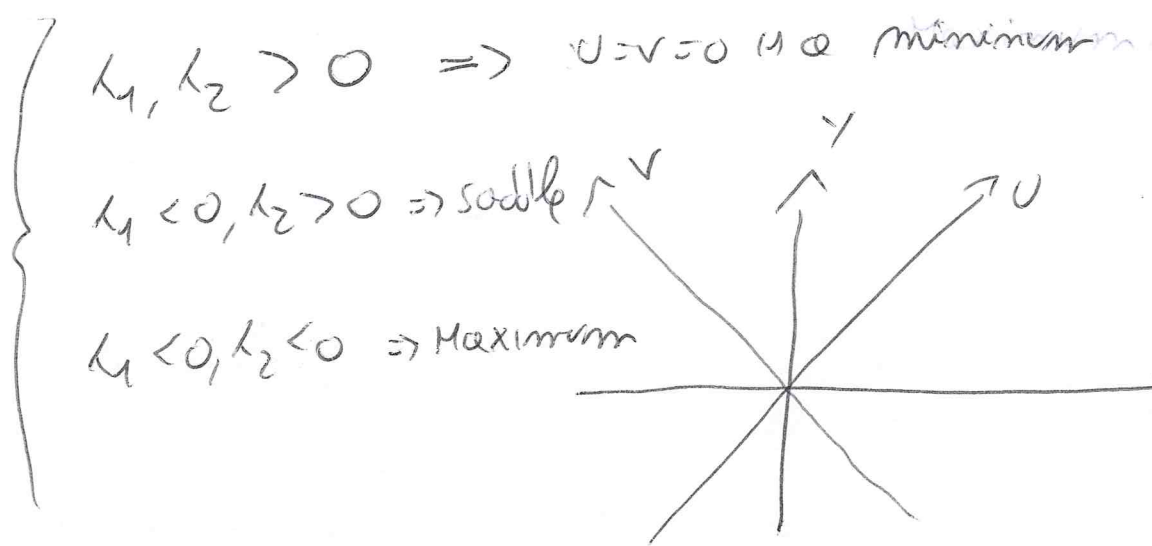 λ1, λ2 > 0 => U=V=0 is a minimum
λ1 <0, λ2 >0 => saddle
λ1 <0, λ2 <0 => Maximum
V
Y
U